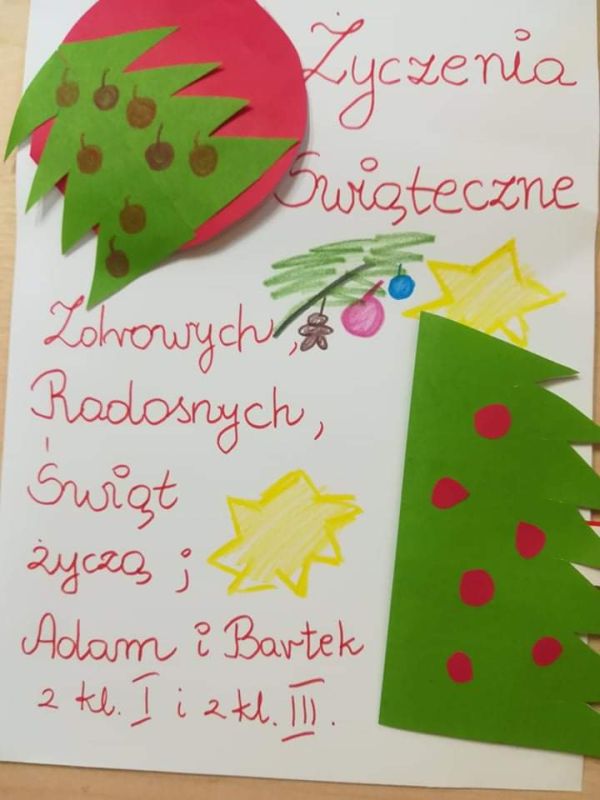 Życzenia
Świąteczne
Zdrowych,
Radosnych,
Świąt
życzą;
Adam i Bartek
z kl. I i z kl. III.